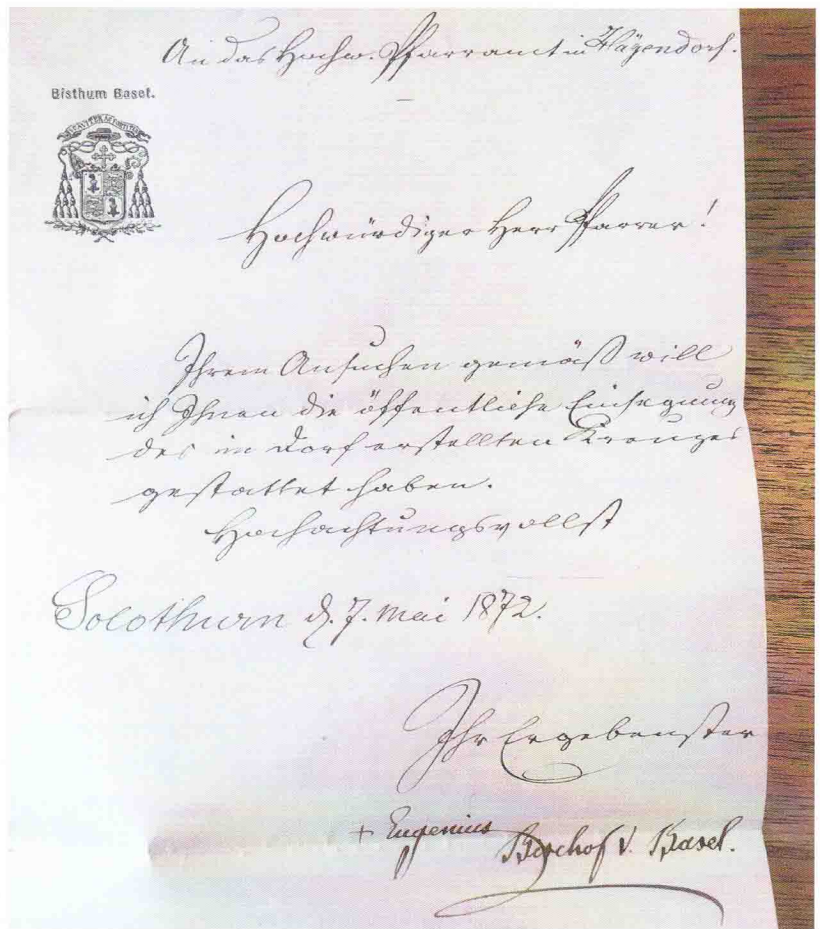 An das Hochw. Pfarramt in Hägendorf.
Bisthum Basel.
SUAVITER AC FORTITER
Hochwürdiger Herr Pfarrer!
Ihrem Ansuchen gemäß will
ich Ihnen die öffentliche Einsegnung
des im Dorf erstellten Kreuzes
gestattet haben.
Hochachtungsvollst
Solothurn d. 7. Mai 1872.
Ihr Ergebenster
+ Eugenius
Bischof v. Basel.